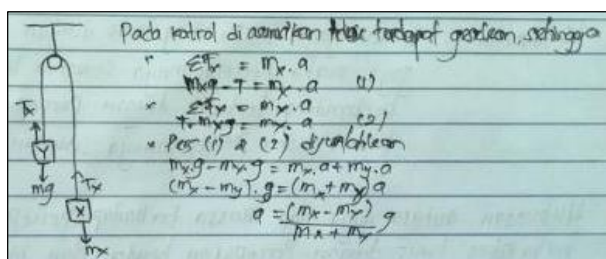 Pada katrol diasumsikan tdk terdapat gesekan, sehingga
" ΣFx = mx . a
mxg - T = mx . a (1)
" ΣFx = my . a
T - mxg = my . a (2)
" Pers (1) & (2) dijumlahkan
mx.g - mx.g = mx.a + my.a
(mx - my) . g = (mx + my) a
a = (mx - my) / mx + my g
Tx
Y
mg
Tx
X
mx